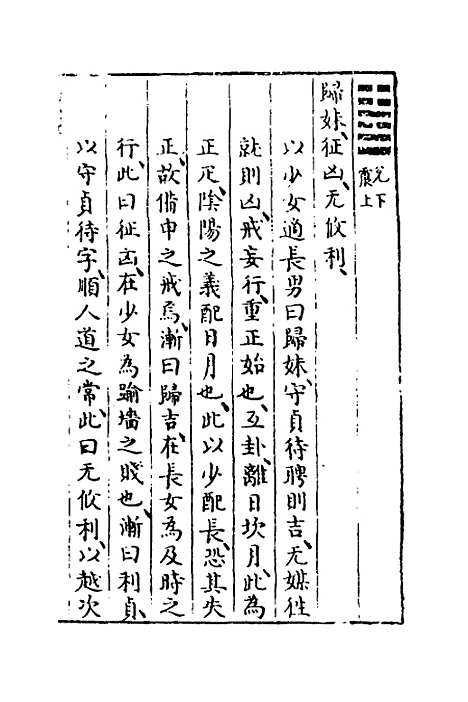 兌下
震上
歸妹、征凶、无攸利、
以少女適長男曰歸妹、守貞待聘則吉、无媒往
就則凶、戒妄行、重正始也、互卦、離日坎月、此為
正疋、陰陽之義配日月也、此以少配長、恐其失
正、故備申之戒焉、漸曰歸吉、在長女為及時之
行、此曰征凶、在少女為踰墻之賤也、漸曰利貞、
以守貞待字、順人道之常、此曰无攸利、以越次